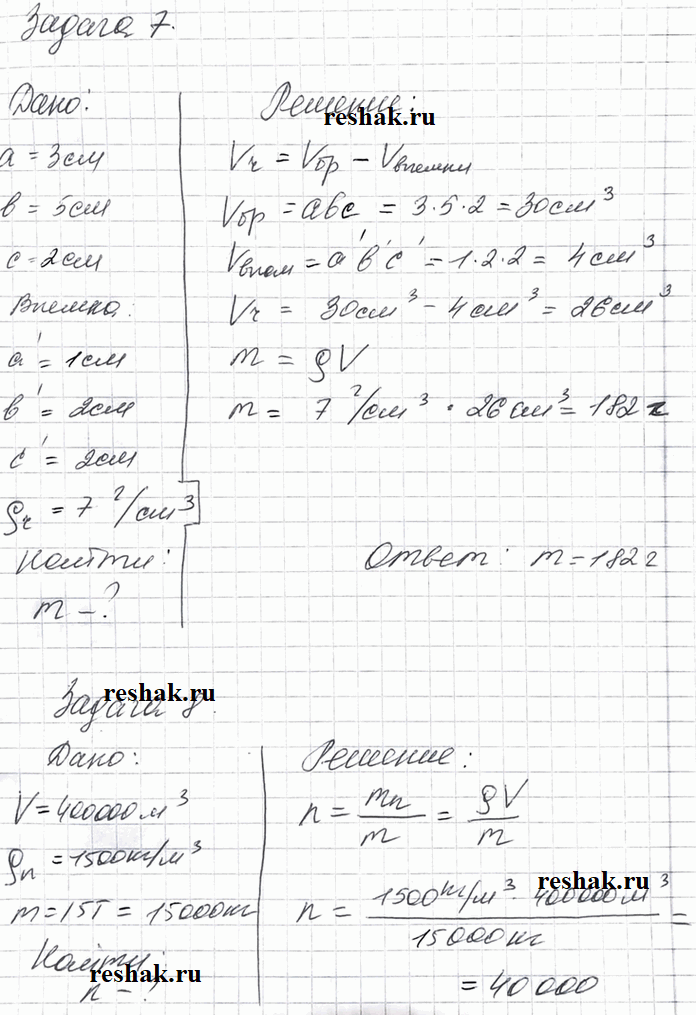 Задача 7.
Дано:
a = 3см
в = 5см
c = 2см
Выемка:
a' = 1см
в' = 2см
c' = 2см
ρч = 7 г/см³
Найти:
m – ?
Решение:
reshak.ru
Vч = Vбр – Vвыемки
Vбр = aвc = 3·5·2 = 30см³
Vвыем = a'в'c' = 1·2·2 = 4см³
Vч = 30см³ – 4см³ = 26см³
m = ρV
m = 7 г/см³ · 26см³ = 182 г
Ответ: m = 182 г
Задача 8.
reshak.ru
Дано:
V = 400000м³
ρп = 1500кг/м³
m = 15т = 15000кг
Найти:
reshak.ru
n – ?
Решение:
n = mп/m = ρV/m
reshak.ru
n = 1500кг/м³ · 400000м³/15000кг =
= 40 000